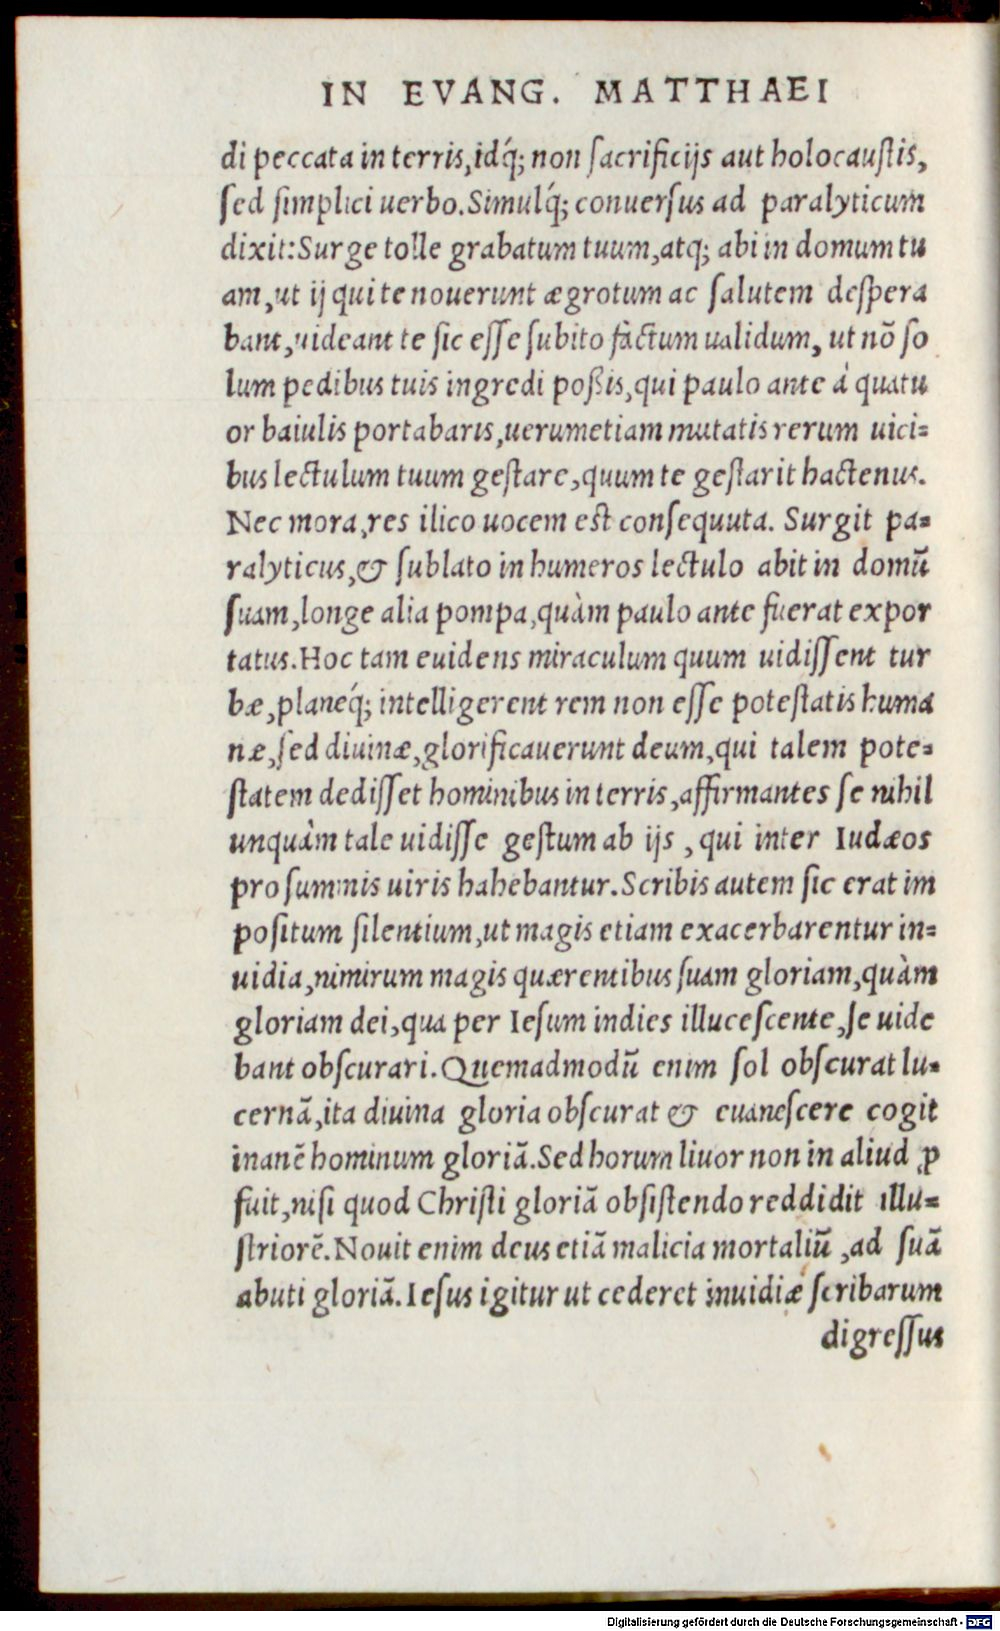 IN EVANG. MATTHAEI
di peccata in terris, idq́; non ſacrificijs aut holocauſtis,
ſed ſimplici uerbo. Simulq́; conuerſus ad paralyticum
dixit: Surge tolle grabatum tuum, atq; abi in domum tu
am, ut ij qui te nouerunt ægrotum ac ſalutem deſpera
bant, uideant te ſic eſſe ſubito factum ualidum, ut nõ ſo
lum pedibus tuis ingredi poßis, qui paulo ante à quatu
or baiulis portabaris, uerumetiam mutatis rerum uici=
bus lectulum tuum geſtare, quum te geſtarit hactenus.
Nec mora, res ilico uocem est conſequuta. Surgit pa=
ralyticus, & ſublato in humeros lectulo abit in domũ
ſuam, longe alia pompa, quàm paulo ante fuerat expor
tatus. Hoc tam euidens miraculum quum uidiſſent tur
bæ, planeq́; intelligerent rem non eſſe poteſtatis huma
næ, ſed diuinæ, glorificauerunt deum, qui talem pote=
ſtatem dediſſet hominibus in terris, affirmantes ſe nihil
unquàm tale uidiſſe geſtum ab ijs , qui inter Iudæos
pro ſummis uiris hahebantur. Scribis autem ſic erat im
poſitum ſilentium, ut magis etiam exacerbarentur in=
uidia, nimirum magis quærentibus ſuam gloriam, quàm
gloriam dei, qua per Ieſum indies illuceſcente, ſe uide
bant obſcurari. Quemadmodũ enim ſol obſcurat lu=
cernã, ita diuina gloria obſcurat & euaneſcere cogit
inanẽ hominum gloriã. Sed horum liuor non in aliud ꝓ
fuit, niſi quod Chriſti gloriã obſiſtendo reddidit illu=
ſtriorẽ. Nouit enim deus etiã malicia mortaliũ , ad ſuã
abuti gloriã. Ieſus igitur ut cederet inuidiæ ſcribarum
digreſſus
Digitalisierung gefördert durch die Deutsche Forschungsgemeinschaft - DFG